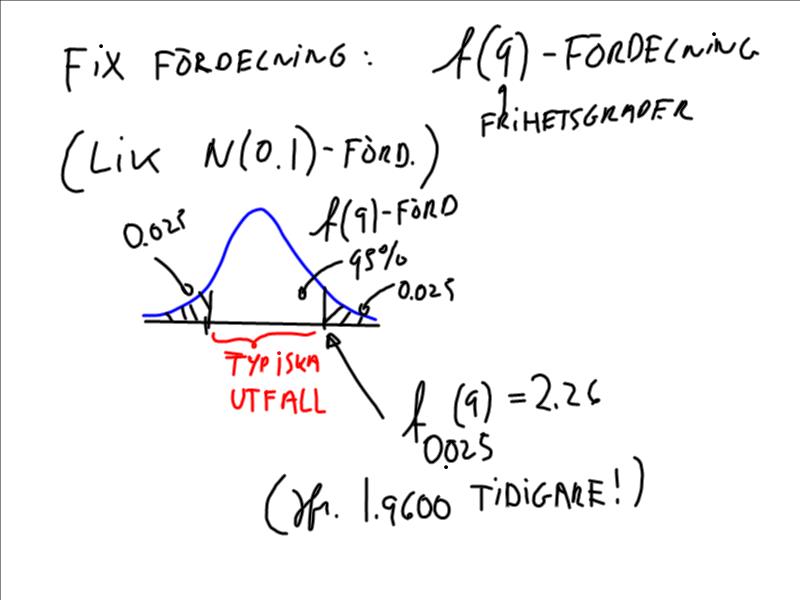 FIX FÖRDELNING: t(9)-FÖRDELNING
FRIHETSGRADER
(LIK N(0.1)-FÖRD.)
0.025
t(9)-FÖRD
95%
0.025
TYPISKA
UTFALL
t0.025(9) = 2.26
(Jfr. 1.9600 TIDIGARE!)